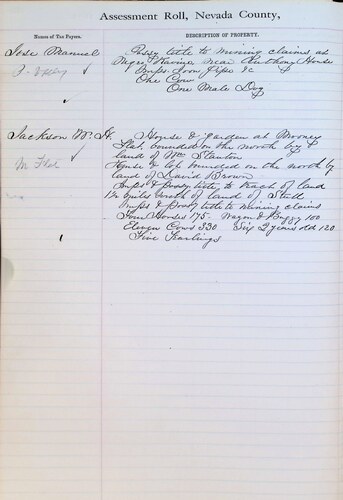 Assessment Roll, Nevada County,
Names of Tax Payers.
DESCRIPTION OF PROPERTY.
Jose Manuel
Possy title to mining claims at
Ravine near Anthony House
Imps Iron Pipe &c
One Cow
One Male Dog
Jackson W. H.
House & garden at Mooney
Flat bounded on the north by
land of Wm Stanton
House & lot bounded on the north by
land of David Brown
M Flat
Imps & possy title to tract of land
1½ miles north of land of
Imps & Possy title to mining claims
Four Horses 175- Wagon & Buggy 100
Eleven Cows 330 Six 2 years old 120
Five Yearlings